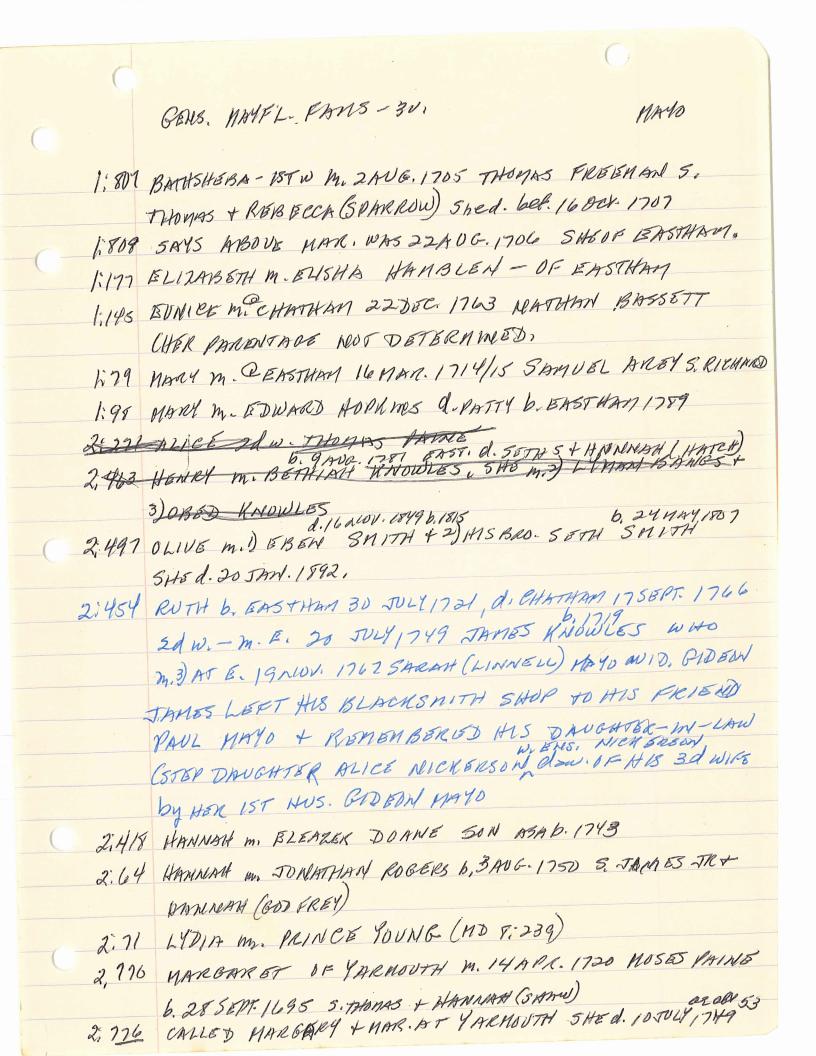 GENS. MAYF'L. FAMS - 3V. MAYO
1:807 BATHSHEBA - 1ST W m. 2 AUG. 1705 THOMAS FREEMAN S.
THOMAS + REBECCA (SPARROW) She d. bef. 16 Oct. 1707
1:809 SAYS ABOVE MAR. WAS 22 AUG. 1706 SHE OF EASTHAM.
1:177 ELIZABETH m. ELISHA HAMBLEN - OF EASTHAM
1:145 EUNICE m. @ CHATHAM 22 DEC. 1763 NATHAN BASSETT
(HER PARENTAGE NOT DETERMINED.
1:79 MARY m. @ EASTHAM 16 MAR. 1714/15 SAMUEL AREY S. RICHARD
1:98 MARY m. EDWARD HOPKINS d. PATTY b. EASTHAM 1789
2:271 ALICE 2d w. THOMAS PAINE
b. 9 AUG. 1781 EAST. d. SETH S + HANNAH (HATCH)
2:463 HENRY m. BETHIAH KNOWLES. SHE m. 2) LYMAN BANGS +
3) OBED KNOWLES
d. 16 NOV. 1849 b. 1815 b. 24 MAY 1807
2:497 OLIVE m. 1) EBEN SMITH + 2) HIS BRO. SETH SMITH
SHE d. 20 JAN. 1892.
2:454 RUTH b. EASTHAM 30 JULY 1721, d. CHATHAM 17 SEPT. 1766
b. 1719
2d w. - m. E. 20 JULY 1749 JAMES KNOWLES WHO
m. 3) AT E. 19 NOV. 1762 SARAH (LINNELL) MAYO WID. GIDEON
JAMES LEFT HIS BLACKSMITH SHOP TO HIS FRIEND
PAUL MAYO + REMEMBERED HIS DAUGHTER-IN-LAW
w. ENS. NICKERSON
(STEP DAUGHTER ALICE NICKERSON ^ dau. OF HIS 3d WIFE
by HER 1ST HUS. GIDEON MAYO
2:418 HANNAH m. ELEAZER DOANE SON ASA b. 1743
2:64 HANNAH m. JONATHAN ROGERS b. 3 AUG. 1750 S. JAMES JR +
HANNAH (GODFREY)
2:71 LYDIA m. PRINCE YOUNG (MD 8:239)
2,776 MARGARET OF YARMOUTH m. 14 APR. 1720 MOSES PAINE
b. 28 SEPT. 1695 S. THOMAS + HANNAH (SHAW)
53
2:776 CALLED MARGERY + MAR. AT YARMOUTH SHE d. 10 JULY, 1749